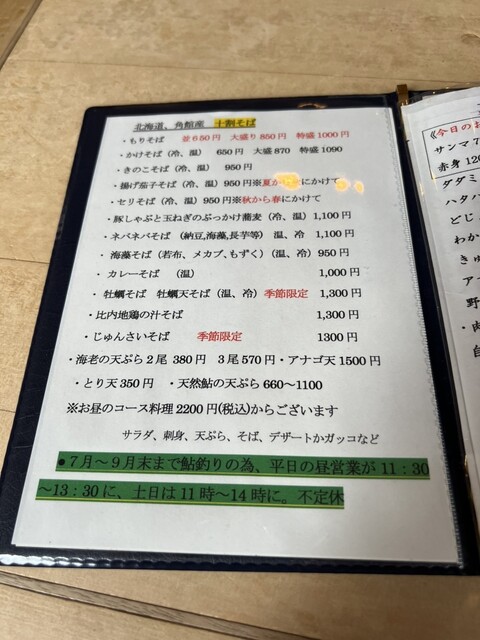 北海道、角館産　十割そば
・もりそば　並650円　大盛り850円　特盛1000円
・かけそば（冷、温）　650円　大盛870　特盛1090
・きのこそば（冷、温）　950円
・揚げ茄子そば（冷、温）950円※夏から にかけて
・セリそば（冷、温）950円※秋から春にかけて
・豚しゃぶと玉ねぎのぶっかけ蕎麦（冷、温）1,100円
・ネバネバそば（納豆,海藻,長芋等）温、冷　1,100円
・海藻そば（若布、メカブ、もずく）（温、冷）950円
・カレーそば　（温）　1,000円
・牡蠣そば　牡蠣天そば（温、冷）季節限定　1,300円
・比内地鶏の汁そば　1,300円
・じゅんさいそば　季節限定　1300円
・海老の天ぷら2尾 380円　3尾570円・アナゴ天1500円
・とり天350円　・天然鮎の天ぷら660～1100
※お昼のコース料理2200円(税込)からございます
サラダ、刺身、天ぷら、そば、デザートかガッコなど
●7月～9月末まで鮎釣りの為、平日の昼営業が11：30
～13：30に、土日は11時～14時に。不定休
《今日のお
サンマ7
赤身120
ダダミ
ハタハ
どじ
わか
きゅ
ア
野
・肉
自